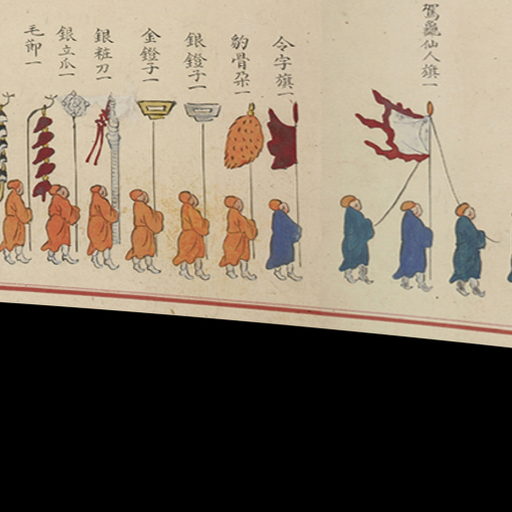 駕龜仙人旗一
令字旗一
豹骨朶一
銀鐙子一
金鐙子一
銀粧刀一
銀立瓜一
毛節一